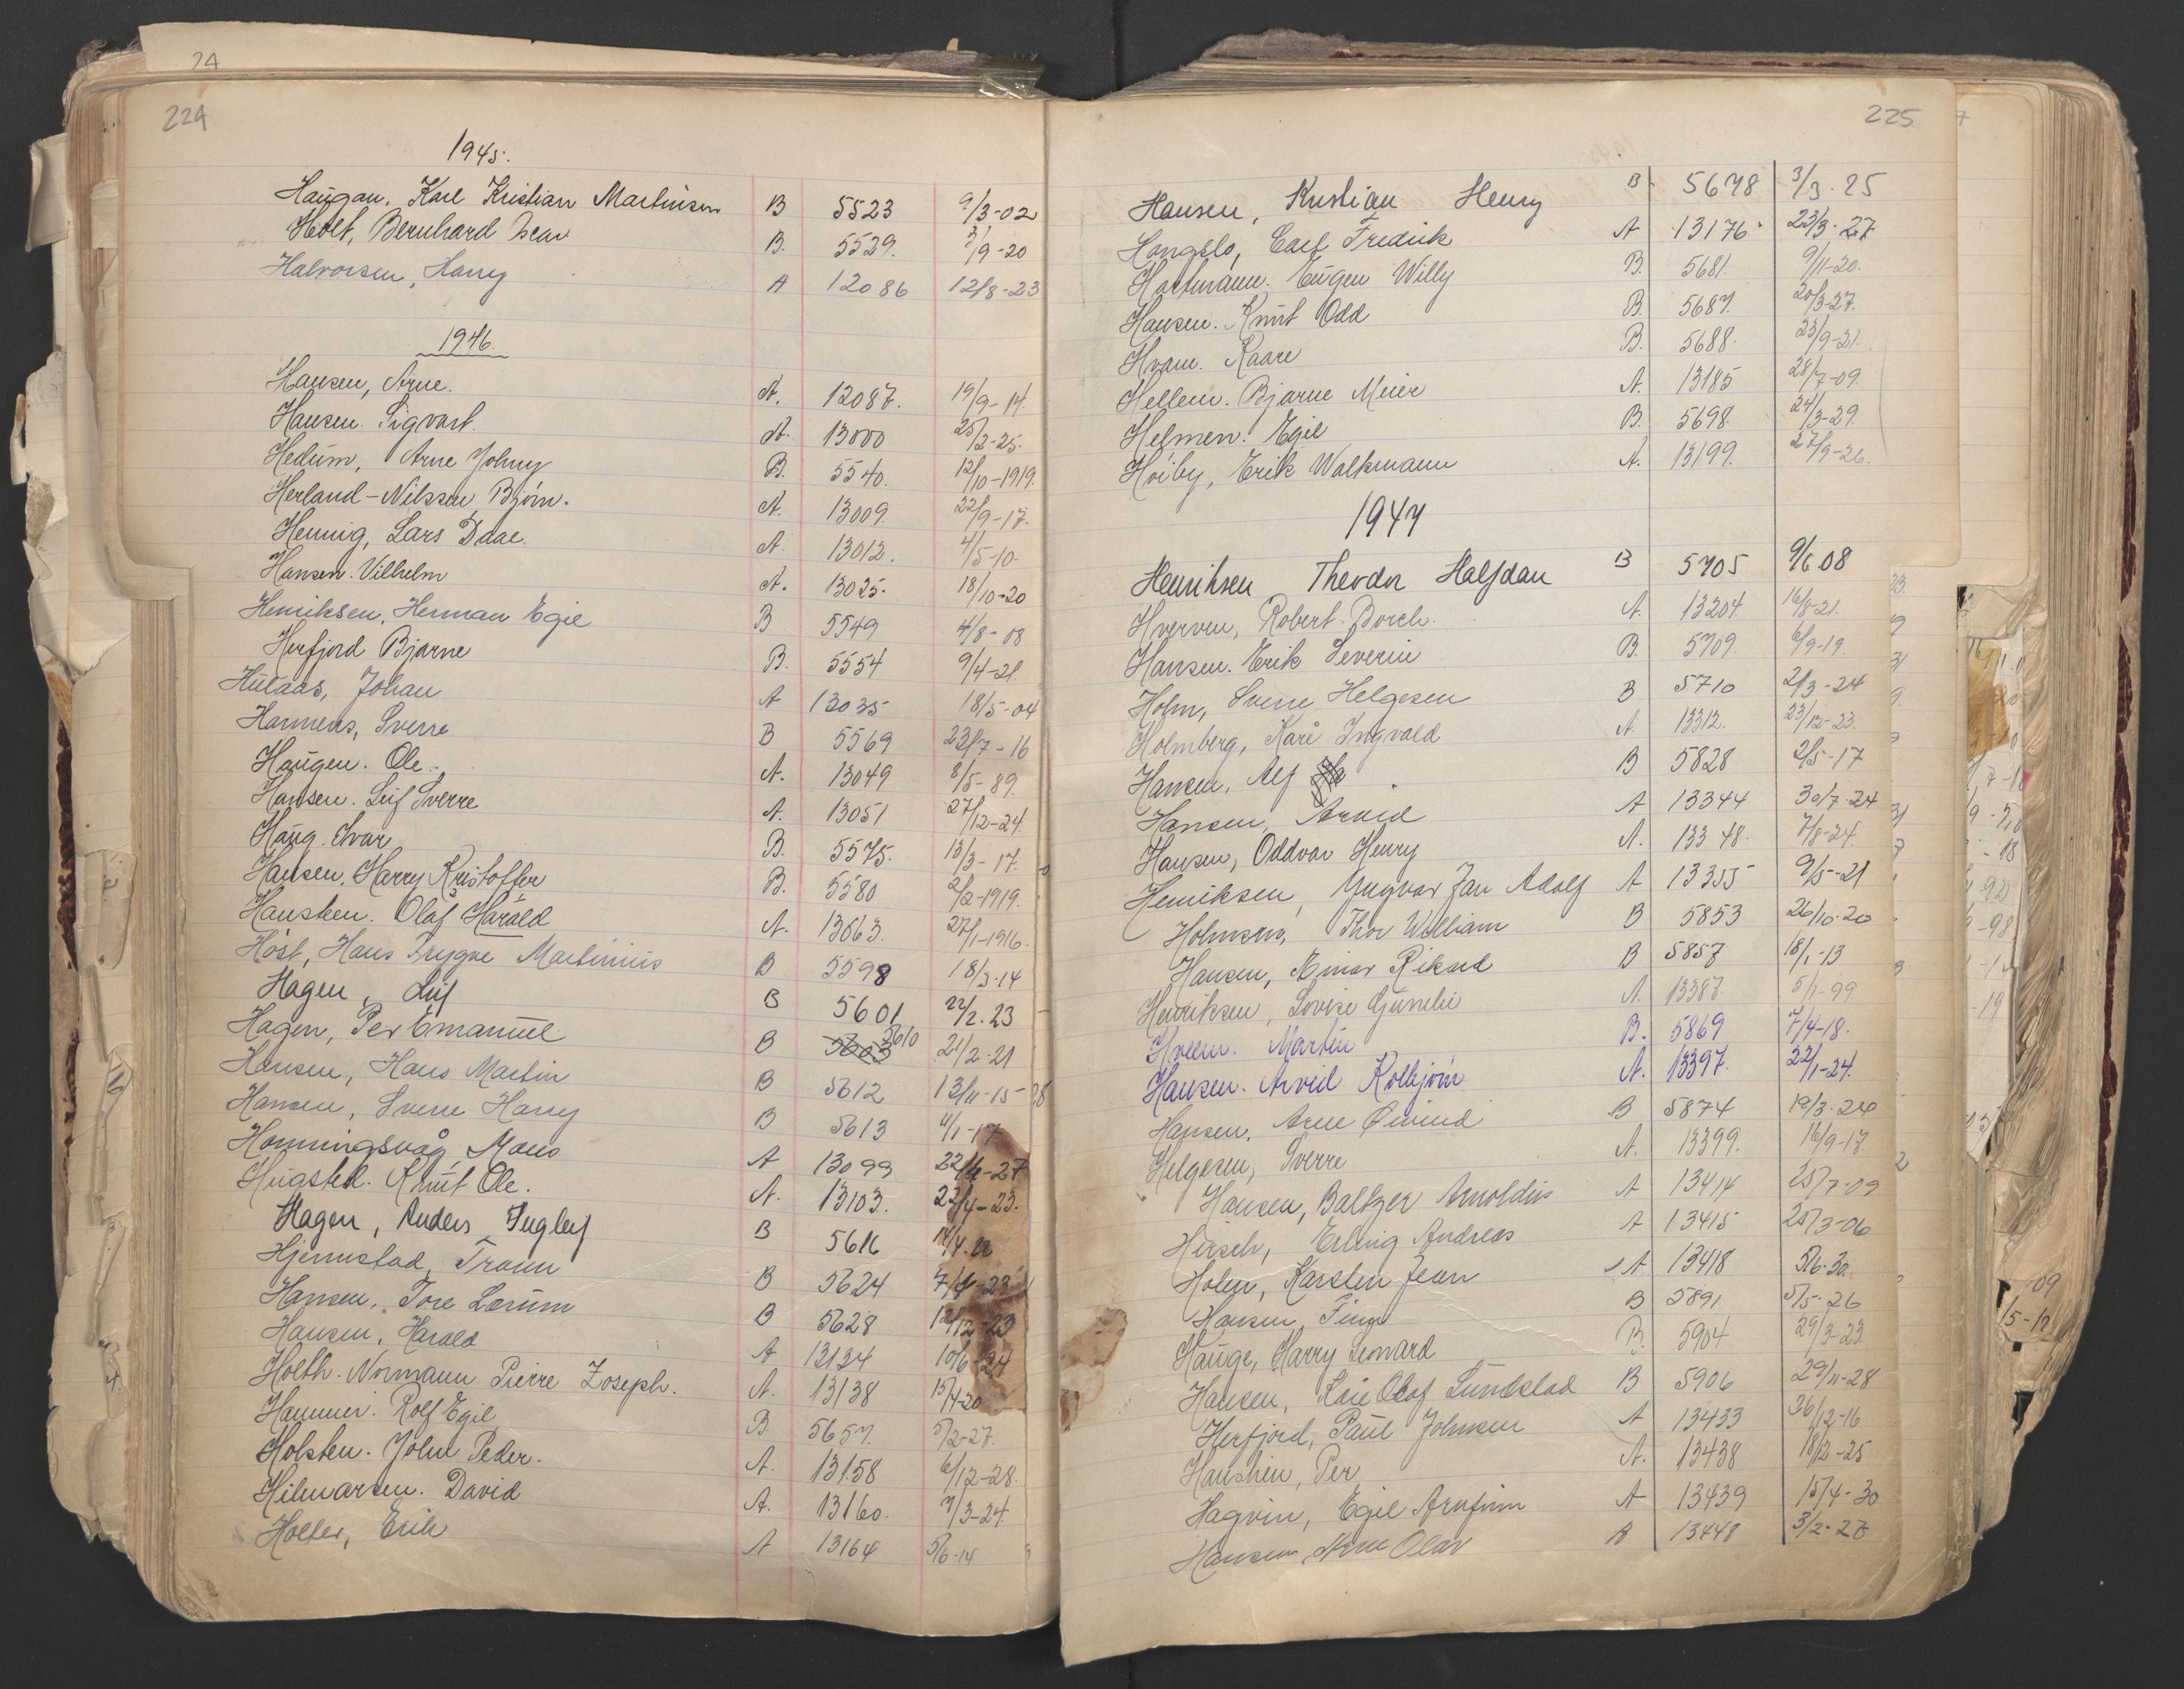 24
224
1945.
Haugan, Karl Kristian Martinsen B 5523 9/3-02
Holt, Bernhard B. 5529. 3/9-20
Halvorsen, Harry A 12086 12/8-23
1946.
Hansen, Arne. A. 12087. 19/9-14.
Hansen. Sigvart. A. 13000 25/2-25.
Hedum, Arne Johny B. 5540. 12/10-1919.
Herland-Nilssen, Bjørn. A. 13009. 22/9-17.
Hennig, Lars Daae. A. 13012. 4/5-10.
Hansen. Vilhelm A. 13025. 18/10-20
Henriksen, Herman Egil B 5549 4/8-08
Herfjord Bjarne B. 5554 9/4-21
Hulaas, Johan A 13035 18/5-04
Hannevas, Sverre B 5569 23/7-16
Haugen. Ole. A. 13049 8/5-89.
Hansen. Leif Sverre A. 13051 27/12-24.
Haug. Ivar B. 5575. 13/3-17.
Hansen, Harry Kristoffer B. 5580 2/2-1919.
Hansteen. Olaf Harald A. 13063. 27/1-1916.
Høst, Hans Trygve Martinius B 5598 18/3-14
Hagen, Leif B 5601 22/2.23
Hagen, Per Emanuel B 5603 5610 21/2-21
Hansen, Hans Martin B 5612 13/11-15
Hansen, Sverre Harry B 5613 4/1-17
Honningsvåg Mons A 13099 22/6-27
Hugsted. Knut Ole. A. 13103. 23/4-23.
Hagen, Anders Ingleif B 5616
Hjemstad, Trann B 5624 7/4-23
Hansen, Tore Lorum B 5628 12/12-23
Hansen, Harald A 13134 10/6-24
Holth. Normann Pierre Joseph. A. 13138 15/4-20
Hammer. Rolf Egil B. 5657. 5/2-27.
Holsten. John Peder. A. 13158 6/12-28.
Hilmarsen. David A. 13160. 7/3-24.
Holter, Erik A 13164 5/6-14
225
Hansen, Kristian Henry B 5678 3/3.25
Hongslo, Carl Fredrik A 13176 23/3-27.
Hartmann. Eugen Willy B. 5681. 9/11-20.
Hansen. Knut Odd B. 5687. 20/3-27.
Hvam. Kaare B. 5688. 23/9-21.
Hellem. Bjarne Meier A. 13185 28/7-09.
Helmen. Egil B. 5698. 24/3-29.
Høiby, Erik Walkmann A. 13199. 27/9-26.
1947
Henriksen Theodor Halfdan B 5705 9/6 08
Hverven, Robert Dorch. A. 13204 16/8-21.
Hansen. Erik Severin B. 5709. 6/9-19.
Holm, Sverre Helgesen B 5710 2/3-24
Holmberg, Kåre Ingvald A. 13312. 23/12-23.
Hansen, Alf B 5828 2/5-17
Hansen, Arvid A 13344 30/7-24
Hansen, Oddvar Henry A. 13348. 7/8-24.
Henriksen, Yngvar Jan Adolf A 13355 9/5-21
Holmsen, Thor William B 5853 26/10-20
Hansen, Einar Rikard B 5857 18/1-13
Henriksen, Lovise Gunelie A. 13387. 5/1-99.
Hveem. Martin B. 5869 7/4-18.
Hansen. Arvid Kolbjørn A. 13397. 22/1-24.
Hansen, Arne Øivind B 5874 19/3-24
Helgesen, Sverre A. 13399. 16/9-17.
Hansen, Baltzer Arnoldus A 13414 25/7-09
Hirsch, Erling Andreas A 13415 25/3-06
Holen, Karsten Jean A. 13418 5/6-30.
Hansen, Finn B 5891 5/5-26
Hauge, Harry Leonard B. 5904 29/3-23.
Hansen, Kåre Olaf Sundstad B 5906 29/11-28
Herfjord, Paul Johnsen A 13433 26/12-16
Hanshien, Per A. 13438 18/2-25
Hagvin, Egil Arnfinn A 13439 15/4-30
Hansen, Arne Olav A 13448 3/2-27